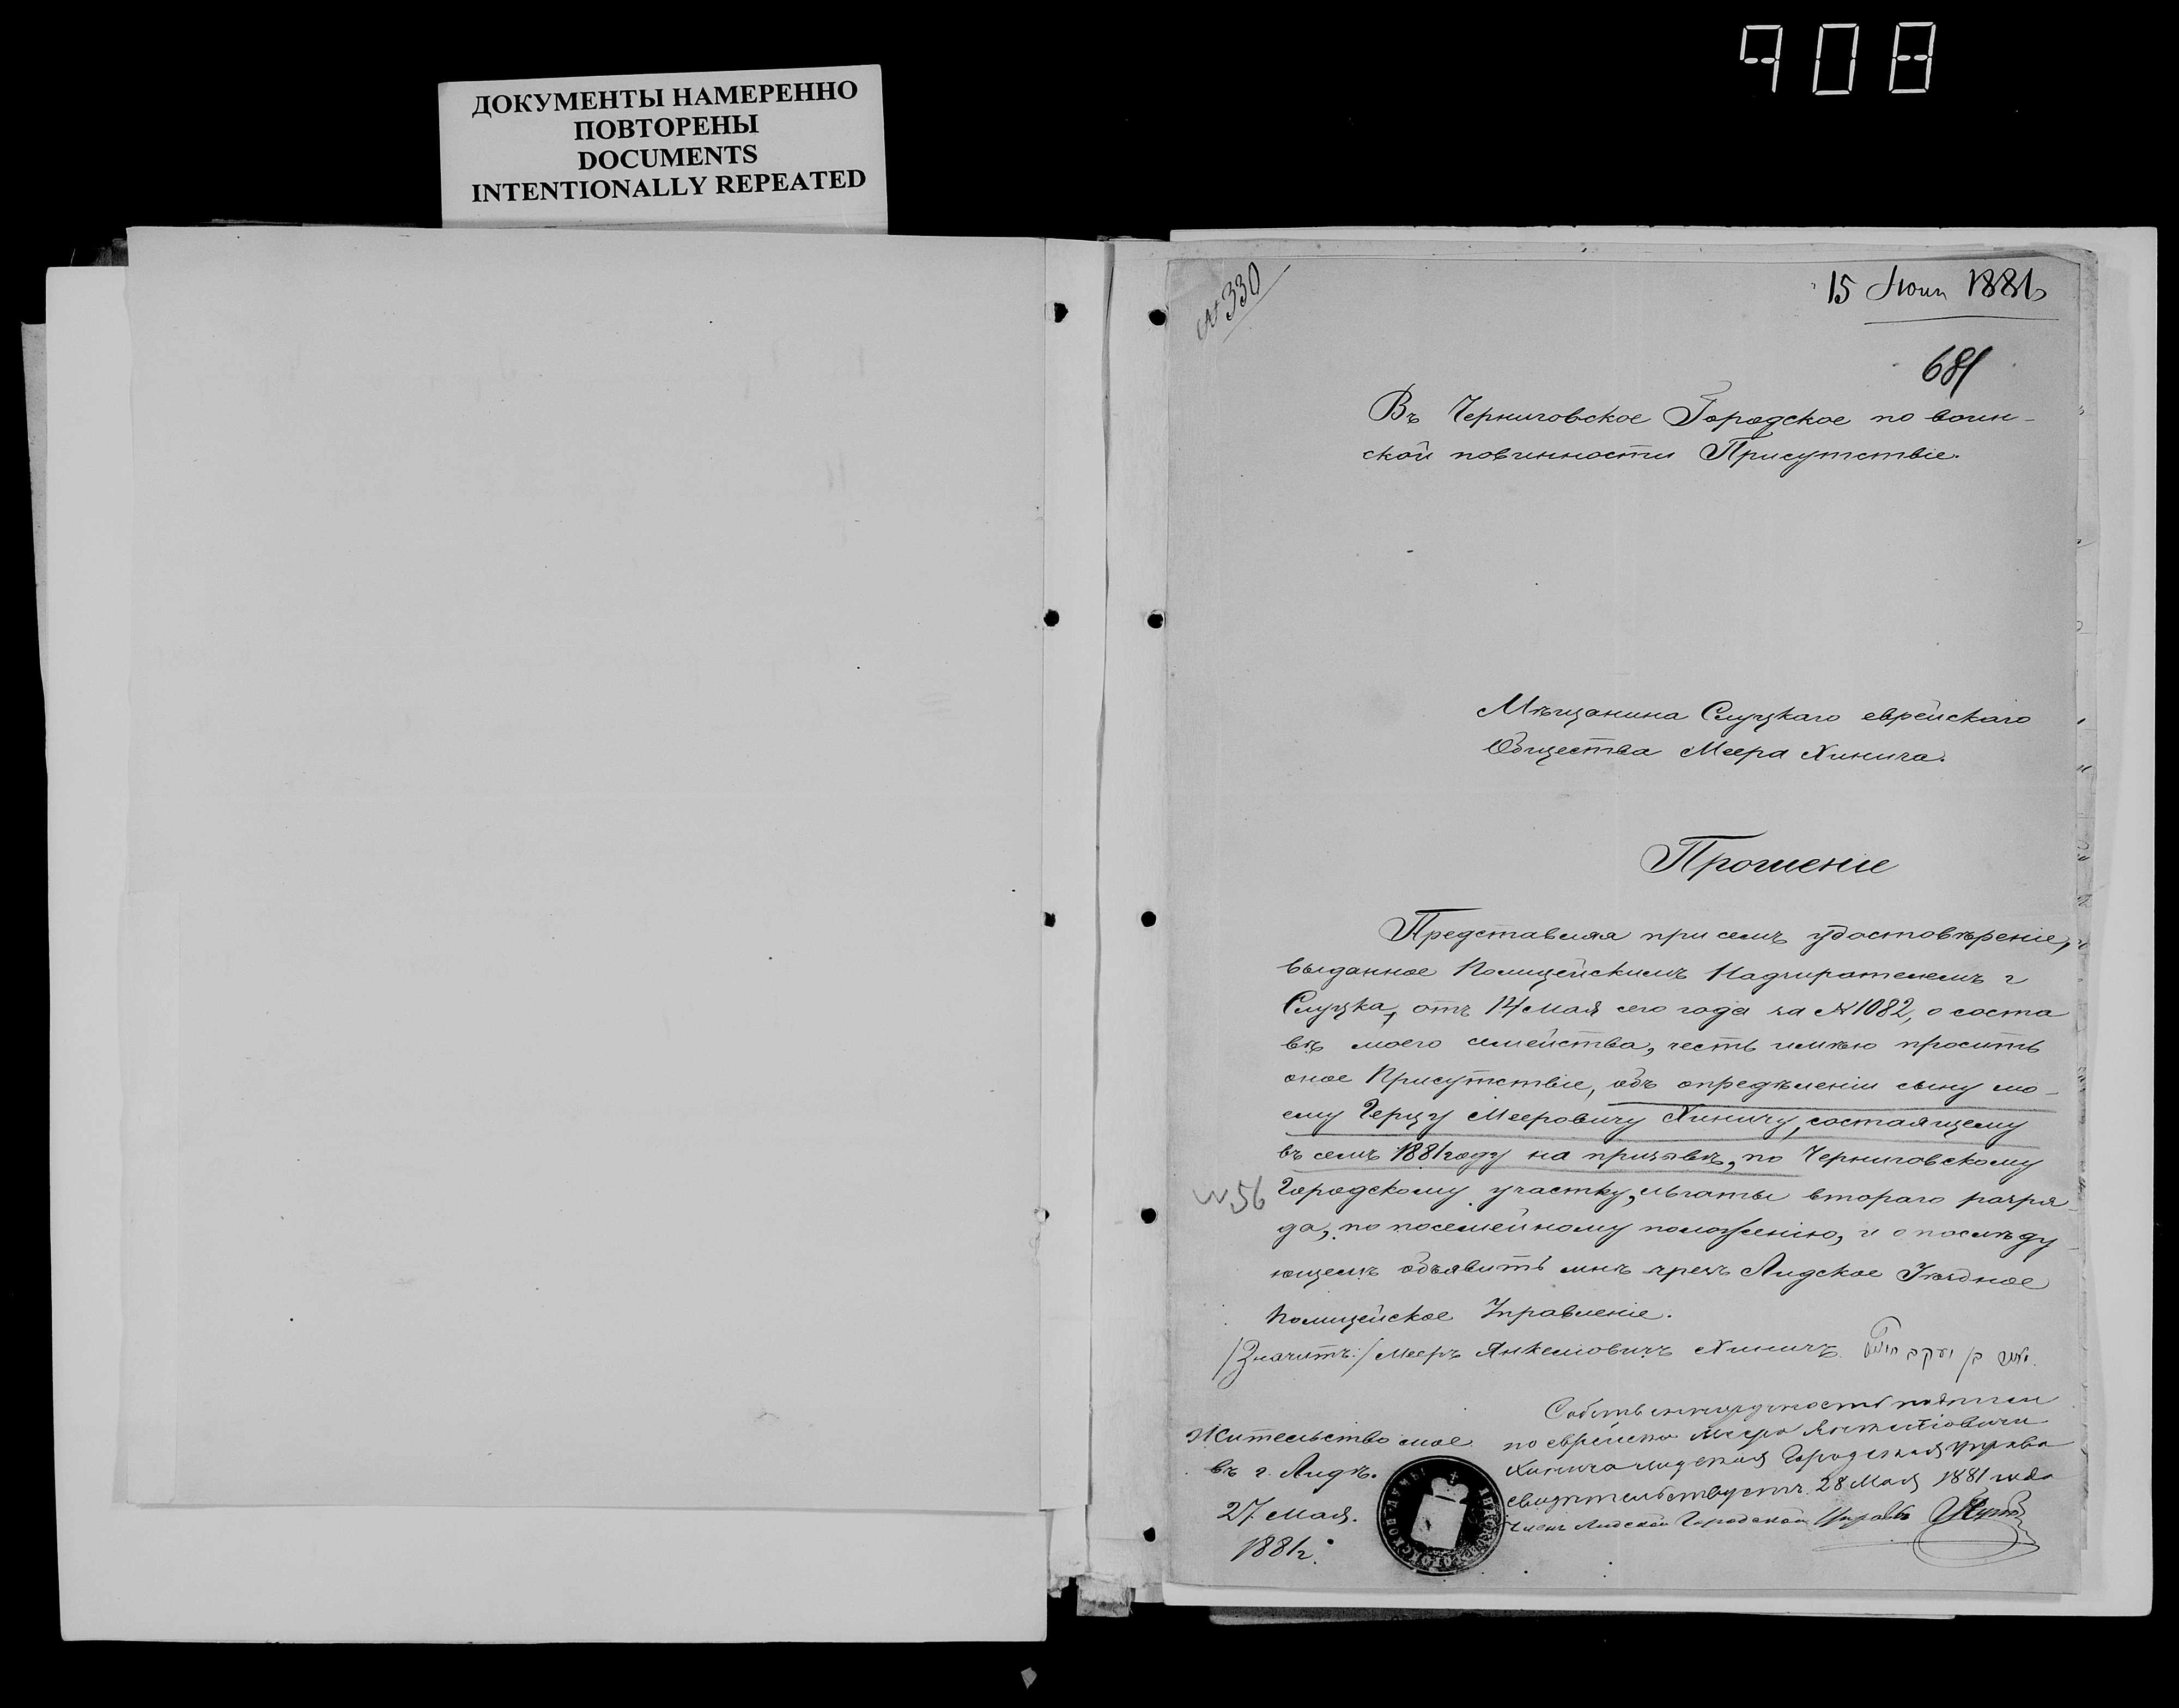 908
ДОКУМЕНТЫ НАМЕРЕННО
ПОВТОРЕНЫ
DOCUMENTS
INTENTIONALLY REPEATED
№ 330
15 Юня 1881
681
Въ Черниговское Городское по воин-
ской повинности Присутствіе.
Мѣщанина Слуцкаго еврейскаго
Общества Меера Хинича.
Прошеніе
Представляя при семъ удостовѣреніе,
выданное Полицейскимъ Надзирателемъ г
Слуцка, отъ 14 Мая сего года за № 1082, о соста
вѣ моего семейства, честь имѣю просить
оное Присутствіе, объ опредѣленіи сыну мо-
ему Герцу Мееровичу Хиничу, состоящему
въ семъ 1881 году на призывѣ, по Черниговскому
№ 56
Городскому участку, льготы втораго разря-
да, по посемейному положенію, и о послѣду-
ющемъ объявить мнѣ чрезъ Лидское Уѣздное
Полицейское Управленіе.
/Значитъ:/ Мееръ Янкелiовичъ Хиничъ.
Жительство мое
въ г. Лидѣ.
27 Мая.
1881 г.
подписи
по еврейски Меера Янкелiовича
Хинича Лидская Городская Управа
свидѣтельствуетъ. 28 Мая 1881 года
Членъ Лидской Городской Управы